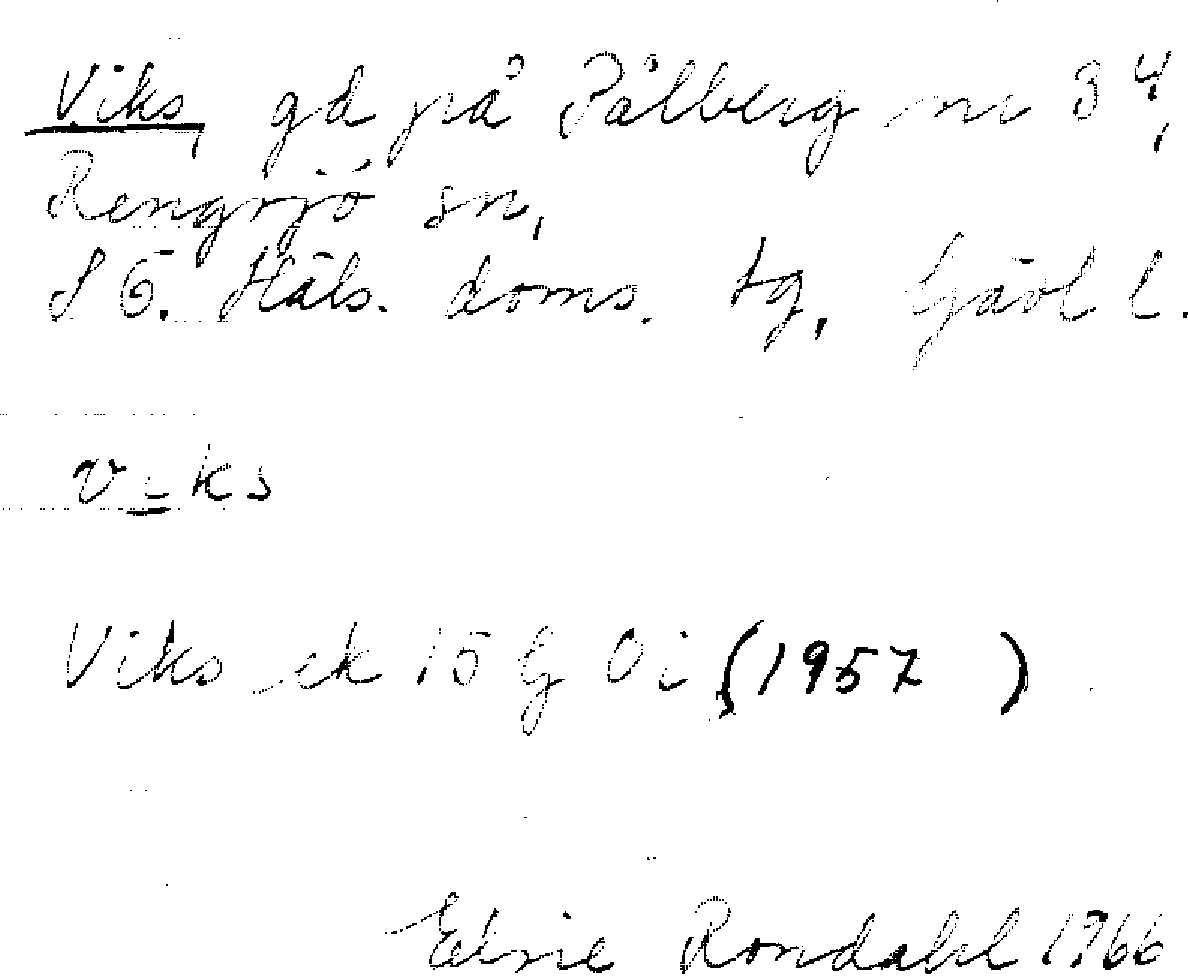 Viks, gd på Pålberg nr 3 4,
Rengsjö sn,
S Ö. Häls. doms. tg, Gävl l.
v i ks
Viks ek 15 G Oi (1957 )
Elsie Rondahl 1966